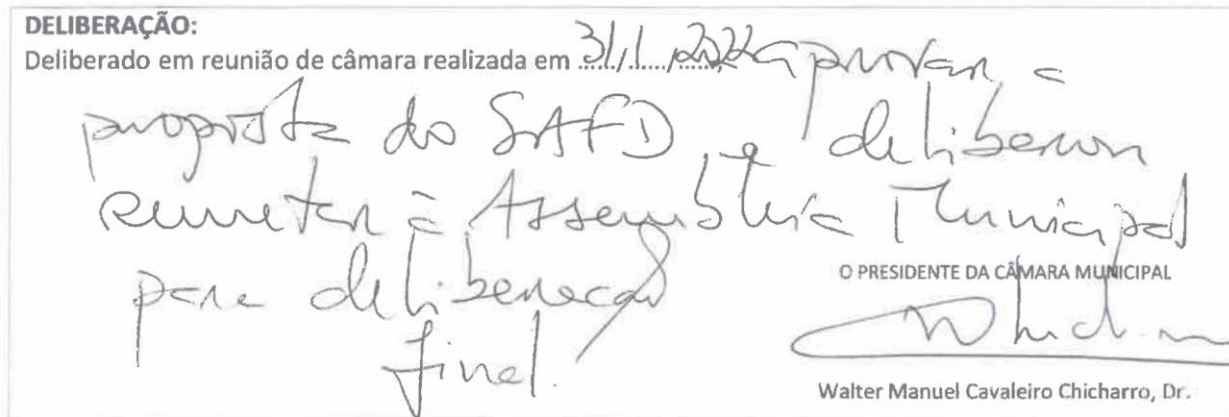 DELIBERAÇÃO:
Deliberado em reunião de câmara realizada em 31/1/2022 aprovar a
proposta do SAFD e deliberou
remeter à Assembleia Municipal
para deliberação
final.
O PRESIDENTE DA CÂMARA MUNICIPAL
Walter Manuel Cavaleiro Chicharro, Dr.